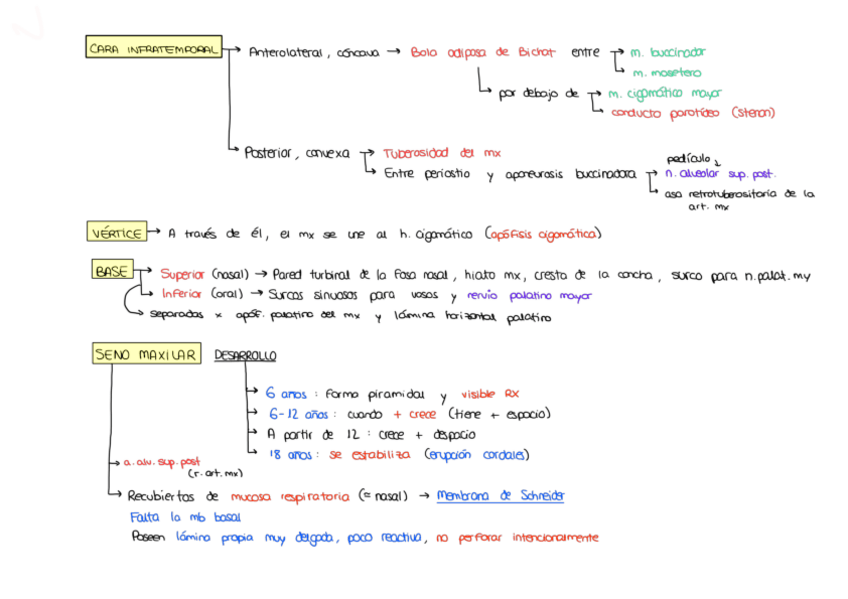 CARA INFRATEMPORAL → Anterolateral, cóncava → Bola adiposa de Bichat entre → m. buccinador
→ m. masetero
→ por debajo de → m. cigomático mayor
→ conducto parotídeo (stenon)
→ Posterior, convexa → Tuberosidad del mx
→ Entre periostio y aponeurosis buccinadora → pedículo
n. alveolar sup. post.
→ asa retrotuberositaria de la
art. mx
VÉRTICE → A través de él, el mx se une al h. cigomático (apófisis cigomática)
BASE → Superior (nasal) → Pared turbinal de la fosa nasal, hiato mx, cresta de la concha, surco para n.palat.my
→ Inferior (oral) → Surcos sinuosos para vasos y nervio palatino mayor
→ separadas x apóf. palatina del mx y lámina horizontal palatino
SENO MAXILAR DESARROLLO
→ 6 años : forma piramidal y visible RX
→ 6-12 años : cuando + crece (tiene + espacio)
→ A partir de 12 : crece + despacio
→ 18 años : se estabiliza (erupción cordales)
→ a. alv. sup. post
(r. art. mx)
→ Recubiertas de mucosa respiratoria (≈ nasal) → Membrana de Schneider
Falta la mb basal
Poseen lámina propia muy delgada, poco reactiva, no perforar intencionalmente